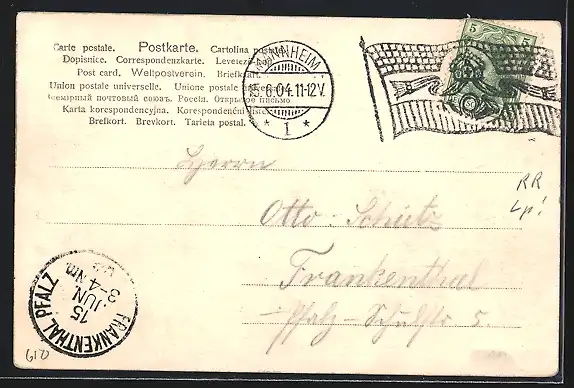 Carte postale. Postkarte. Cartolina postale.
Dopisnice. Correspondenzkarte. Levelező-
Post card. Weltpostverein. Briefkart.
Union postale universelle. Unione postale
всемірный почтовый союзъ. Россія. Открытое письмо
Karta korespondencyjna. Korespondenční lístek
Brefkort. Brevkort. Tarjeta postal.
MANNHEIM
15.6.04.11-12V.
* 1 *
5 5
Herrn
Otto Schütz
Frankenthal
Pfalz-Schulstr 5.
RR
Lp!
FRANKENTHAL PFALZ
15
JUN.
3-4 Nm.
610